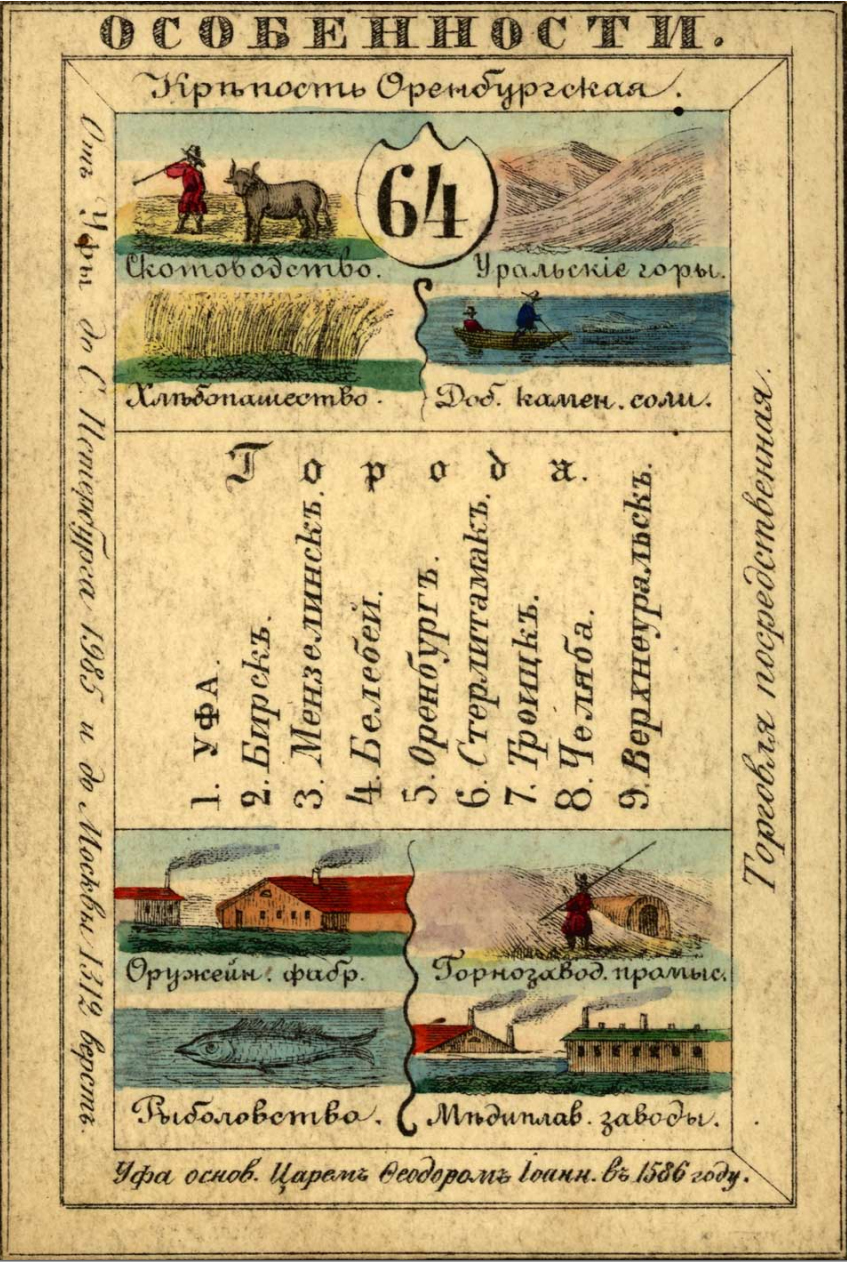 ОСОБЕННОСТИ.
Крѣпость Оренбургская.
Отъ Уфы до С. Петербурга 1985 и до Москвы 1312 верстъ.
64
Скотоводство.
Уральскіе горы.
Хлѣбопашество.
Доб. камен. соли.
Города.
1. УФА.
2. Бирскъ.
3. Мензелинскъ.
4. Белебей.
5. Оренбургъ.
6. Стерлитамакъ.
7. Троицкъ.
8. Челяба.
9. Верхнеуральскъ.
Торговля посредственная.
Оружейн. фабр.
Горнозавод. прамыс.
Рыболовства.
Мѣдиплав. заводы.
Уфа основ. Царемъ Ѳеодоромъ Іоанн. въ 1586 году.